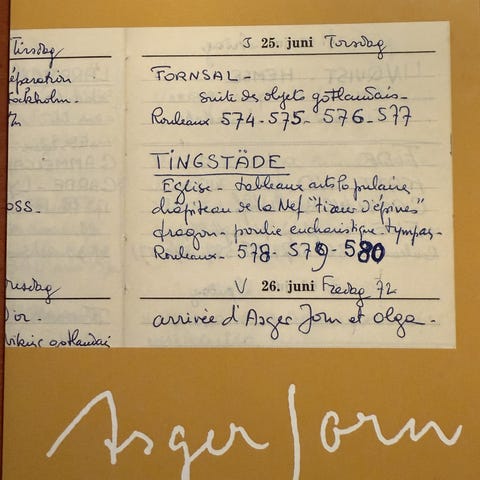 Tirsdag
éparation
tockholm.
oss.
J 25. juni Torsdag
FORNSAL -
suite des objets gotlandais -
Rouleaux 574-575- 576-577
TINGSTÄDE
Eglise - tableaux arts populaire
chapiteau de la Nef "tireur d'épines"
dragon - poulie eucharistique - tympan -
Rouleaux - 578 - 579 - 580
V 26. juni Fredag 72
arrivée d'Asger Jorn et Olga -
d'or.
gotlandai
Asger Jorn